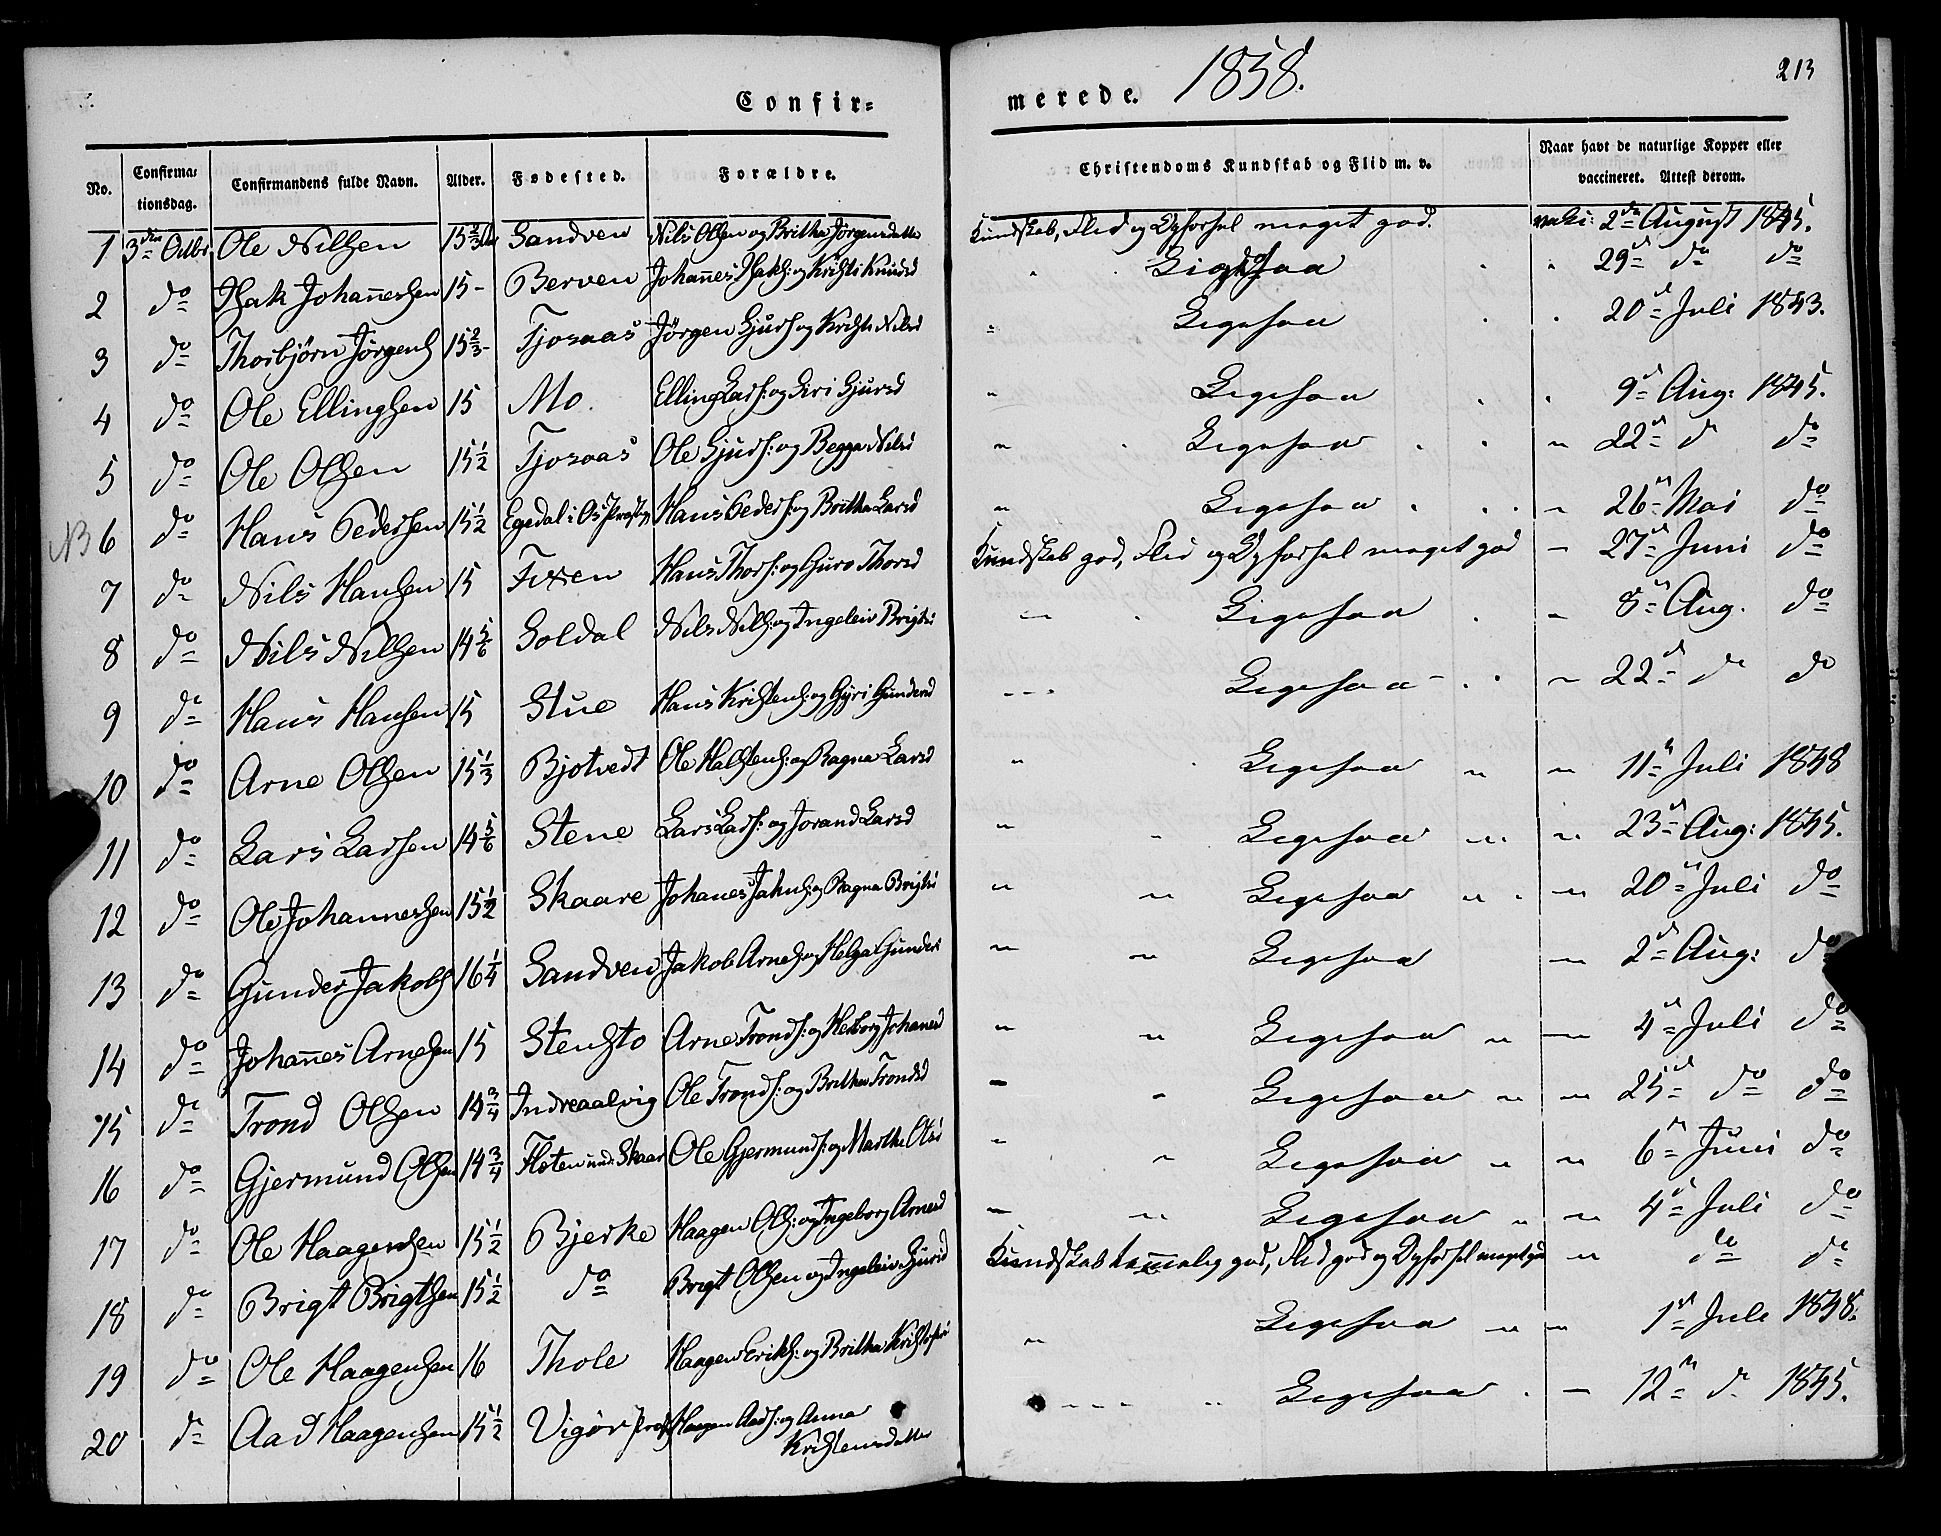 Confir= merede. 1858. 213
No. Confirma: tionsdag. Confirmandens fulde Navn. Alder. Fødested. Forældre. Christendoms Kundskab og Flid m. v. Naar havt de naturlige Kopper eller vaccineret. Attest derom.
1 3die Octbr Ole Nilssen 15 2/3 Sandven Nils Olssen og Britha Jørgensdatter Kundskab, Flid og Opførsel meget god. vaksi: 2den August 1845.
2 do Isak Johannessen 15 - Berven Johannes Isaks: og Kristi Knudsd Ligesaa 29de do do
3 do Thorbjørn Jørgens 15 2/3 - Tjosaas Jørgen Gjurs og Kristi Nilsd Ligesaa 20de Juli 1843.
4 do Ole Ellingsen 15 Mo. Elling Lars: og Siri Gjursd Ligesaa 9de Aug: 1845.
5 do Ole Olssen 15 1/2 Tjosaas Ole Gjurs: og Begga Nilsd Ligesaa 22de do do
NB 6 do Hans Pedersen 15 1/2 Egedal i Os Præstg Hans Peders: og Britha Larsd Ligesaa 26de Mai do
7 do Nils Hanssen 15 Fixen Hans Thors: og Guro Thorsd Kundskab god, Flid og Opførsel meget god 27de Juni do
8 do Nils Nilssen 14 5/6 Soldal Nils Nilss: og Ingeleiv Brigts: Ligesaa 8de Aug. do
9 do Hans Hansen 15 Stue Hans Kristens: og Gyri Gundersd Ligesaa 22de do do
10 do Arne Olssen 15 1/3 Bjotvedt Ole Halstens: og Ragna Larsd Ligesaa 11te Juli 1848
11 do Lars Larsen 14 5/6 Stene Lars Lars: og Jorand Larsd Ligesaa 23de Aug: 1845.
12 do Ole Johannessen 15 1/2 Skaare Johanes Jakns: og Ragna Brigtsd Ligesaa 20de Juli do
13 do Gunder Jakobs 16 1/4 Sandven Jakob Arnes: og Helga Gunders Ligesaa 2den Aug: do
14 do Johannes Arnesen 15 Stensto Arne Tronds: og Herborg Johanesd Ligesaa 4de Juli do
15 do Trond Olssen 14 3/4 Indreaalvig Ole Tronds: og Britha Trondsd Ligesaa 25de do do
16 do Gjermund Olssen 14 3/4 Floten und: Skaar Ole Gjermunds: og Martha Olsd Ligesaa 6te Juni do
17 do Ole Haagensen 15 1/2 Bjerke Haagen Ols: og Ingeborg Arnesd Ligesaa 4de Juli do
18 do Brigt Brigtsen 15 1/2 do Brigt Olssen og Ingeleiv Gjursd Kundskab temmelig god, Flid god og Opførsel meget god do do
19 do Ole Haagensen 16 Thole Haagen Eriks: og Britha Kristofsd Ligesaa 1ste Juli 1848.
20 do Aad Haagensen 15 1/2 Vigør Præstg Haagen Aads: og Anna Kristensdatter Ligesaa 12te do 1845.